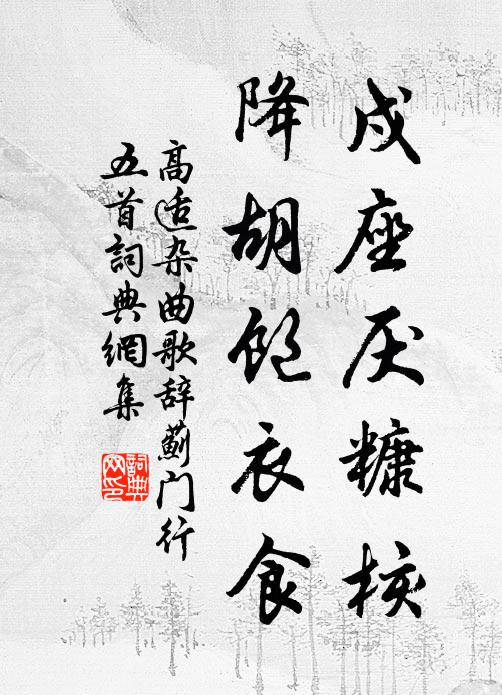 戍座厌糠核
降胡饱衣食
高适杂曲歌辞薊门行
五首詞典網集
詞典網印